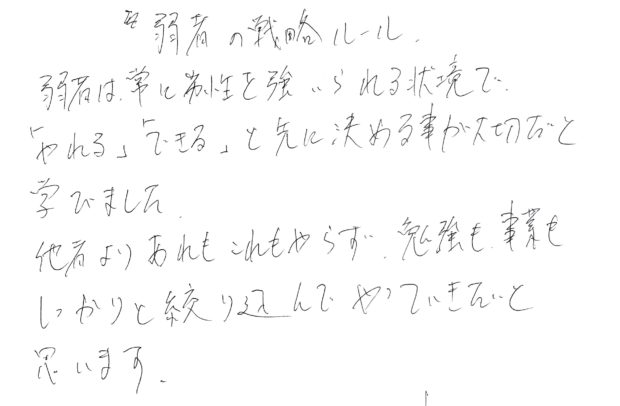 弱者の戦略ルール.
弱者は、常に劣性を強いられる状境で、
「やれる」「できる」と先に決める事が大切だと
学びました.
他者よりあれもこれもやらず、勉強も、事業も
しっかりと絞り込んでやっていきたいと
思います.